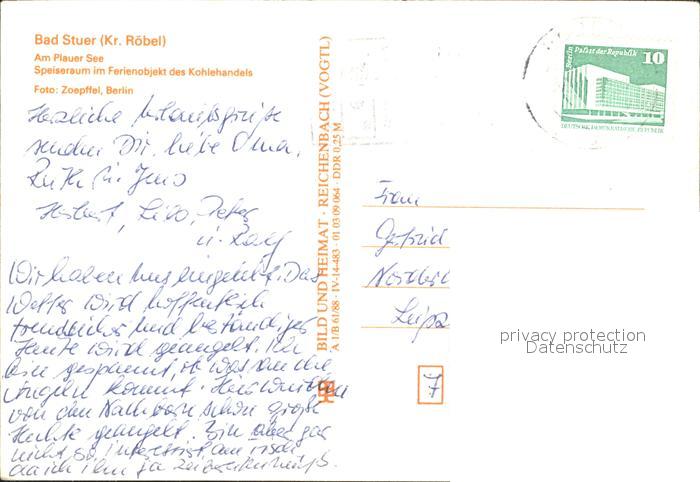 Bad Stuer (Kr. Röbel)
Am Plauer See
Speiseraum im Ferienobjekt des Kohlehandels
Foto: Zoepffel, Berlin
Herzliche Urlaubsgrüße
senden Dir, liebe Oma,
Ruth u. Jens
Herbert, Peter
u. Ralf
Wir haben uns eingelebt. Das
Wetter wird hoffentlich
freundlicher und beständiger
Heute wird geangelt. Ich
bin gespannt, ob was an die
Angeln kommt. Hier wurden
von den Nachbarn schon große
Hechte geangelt. Bin aber gar
nicht so interessiert am
da ich ihn ja
BILD UND HEIMAT · REICHENBACH (VOGTL)
A 1/B 61/88 · IV-14-483 · 01 03 09 064 · DDR 0,25 M
Berlin Palast der Republik
10
DEUTSCHE DEMOKRATISCHE REPUBLIK
Frau
Leipz
7
privacy protection
Datenschutz